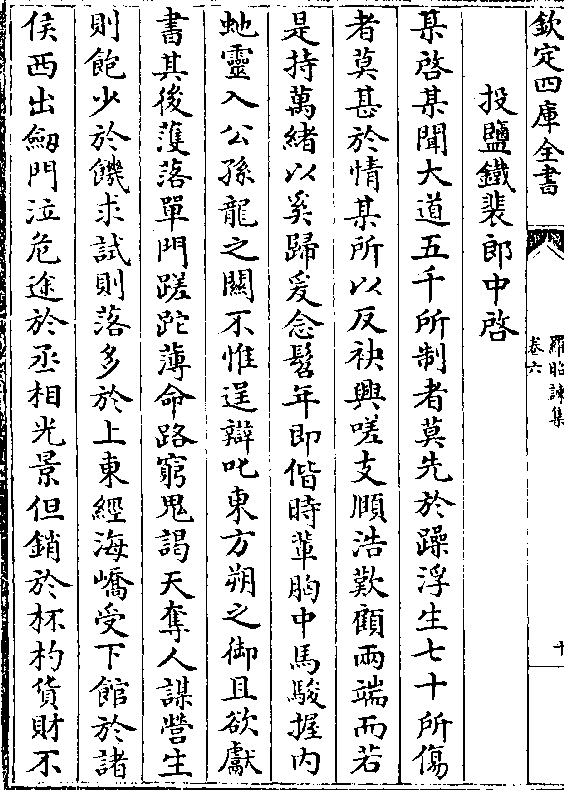 欽定四庫全書
羅昭諫集
卷六
十
投鹽鐵裴郎中啓
某啓某聞大道五千所制者莫先於躁浮生七十所傷
者莫甚於情某所以反袂興嗟支頤浩歎顧兩端而若
是持萬緒以奚歸爰念髫年即偕時輩胸中馬駿握內
虵靈入公孫龍之關不惟逞辯叱東方朔之御且欲獻
書其後蒦落單門蹉跎薄命路窮鬼謁天奪人謀營生
則飽少於饑求試則落多於上東經海嶠受下館於諸
侯西出劒門泣危途於丞相光景但銷於杯杓貨財不